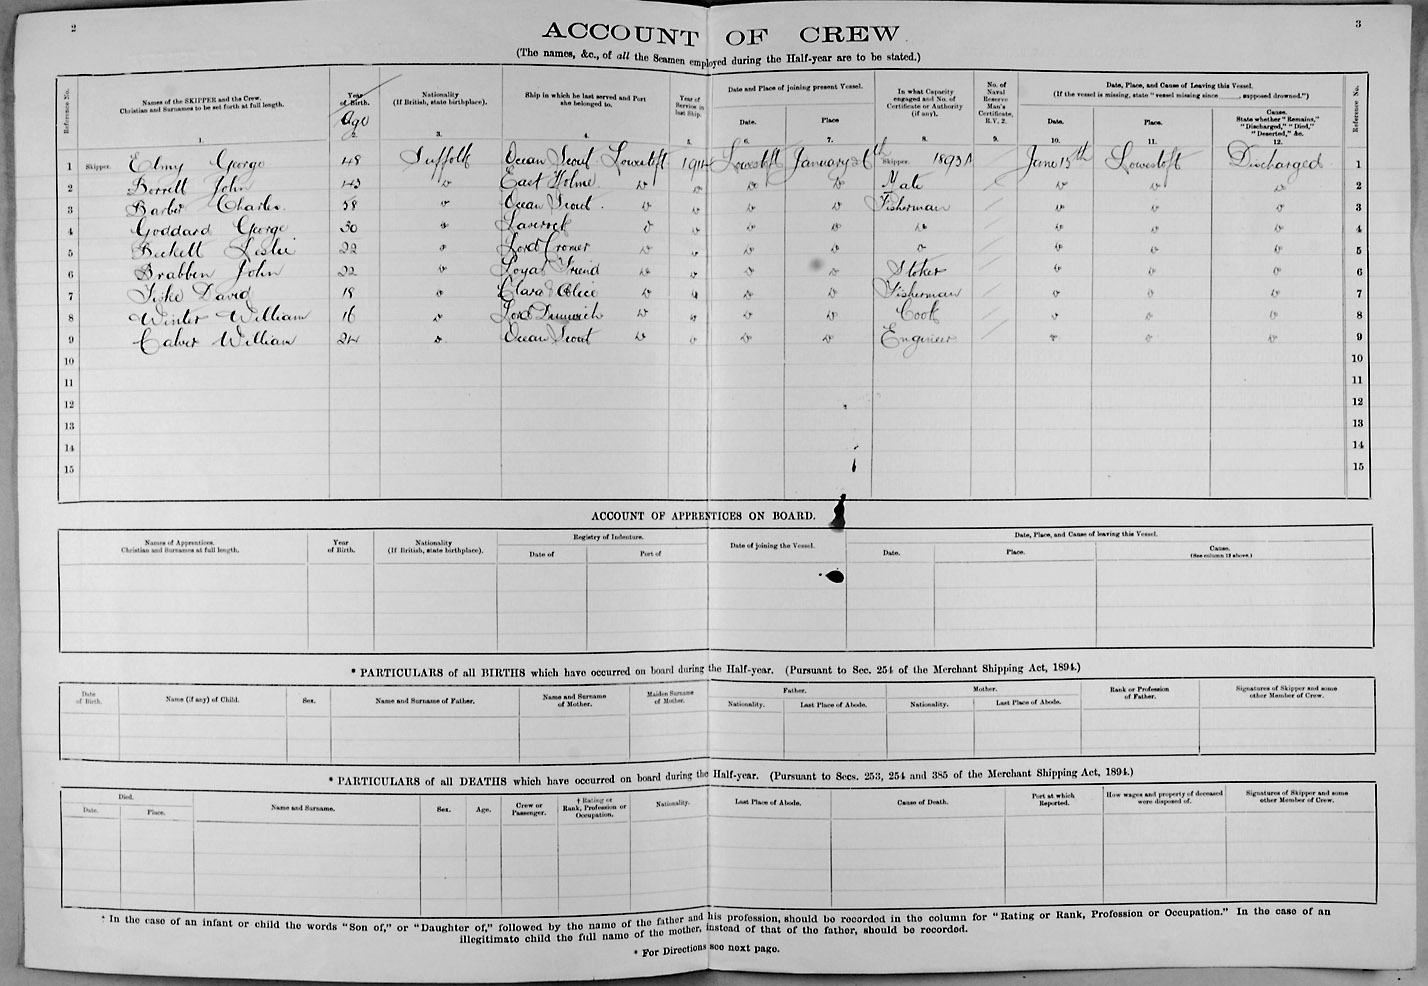 2
3
ACCOUNT OF CREW
(The names, &c., of all the Seamen employed during the Half-year are to be stated.)
Reference No.
Names of the SKIPPER and the Crew. Christian and Surnames to be set forth at full length.
Year of Birth. Age
Nationality (If British, state birthplace).
Ship in which he last served and Port she belonged to.
Year of Service in last Ship.
Date and Place of joining present Vessel.
Date.
Place
In what Capacity engaged and No. of Certificate or Authority (if any).
No. of Naval Reserve Man's Certificate, R.V. 2.
Date, Place, and Cause of Leaving this Vessel.
(If the vessel is missing, state "vessel missing since ____, supposed drowned.")
Date.
Place.
Cause. State whether "Remains," "Discharged," "Died," "Deserted," &c.
Reference No.
1. 2. 3. 4. 5. 6. 7. 8. 9. 10. 11. 12.
1 Skipper. Elmy George 48 Suffolk Ocean Scout Lowestoft 1914 Lowestoft January 26th Skipper. 1893 June 15th Lowestoft Discharged 1
2 Borrett John 43 " East Holme " " " " Mate " " " 2
3 Barber Charles 58 " Ocean Scout " " " " Fisherman " " " 3
4 Goddard George 30 " Laverock " " " " " " " " 4
5 Beckett Leslie 22 " Lord Cromer " " " " " " " " 5
6 Brabben John 22 " Loyal Friend " " " " Stoker " " " 6
7 Fiske David 19 " Clara & Alice " " " " Fisherman " " " 7
8 Winter William 16 " Lord Dunwich " " " " Cook " " " 8
9 Calver William 24 " Ocean Scout " " " " Engineer " " " 9
10 10
11 11
12 12
13 13
14 14
15 15
ACCOUNT OF APPRENTICES ON BOARD.
Names of Apprentices. Christian and Surnames at full length.
Year of Birth.
Nationality (If British, state birthplace).
Registry of Indenture.
Date of
Port of
Date of joining the Vessel.
Date, Place, and Cause of leaving this Vessel.
Date.
Place.
Cause. (See column 12 above.)
* PARTICULARS of all BIRTHS which have occurred on board during the Half-year. (Pursuant to Sec. 254 of the Merchant Shipping Act, 1894.)
Date of Birth.
Name (if any) of Child.
Sex.
Name and Surname of Father.
Name and Surname of Mother.
Maiden Surname of Mother.
Father.
Nationality.
Last Place of Abode.
Mother.
Nationality.
Last Place of Abode.
Rank or Profession of Father.
Signatures of Skipper and some other Member of Crew.
* PARTICULARS of all DEATHS which have occurred on board during the Half-year. (Pursuant to Secs. 253, 254 and 385 of the Merchant Shipping Act, 1894.)
Died.
Date.
Place.
Name and Surname.
Sex.
Age.
Crew or Passenger.
† Rating or Rank, Profession or Occupation.
Nationality.
Last Place of Abode.
Cause of Death.
Port at which Reported.
How wages and property of deceased were disposed of.
Signatures of Skipper and some other Member of Crew.
† In the case of an infant or child the words "Son of," or "Daughter of," followed by the name of the father and his profession, should be recorded in the column for "Rating or Rank, Profession or Occupation." In the case of an
illegitimate child the full name of the mother, instead of that of the father, should be recorded.
* For Directions see next page.